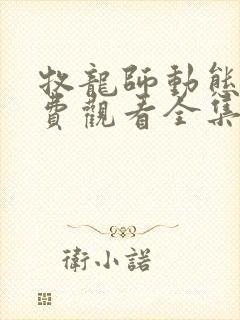 牧龍師動態
費觀看全集
衛小諾